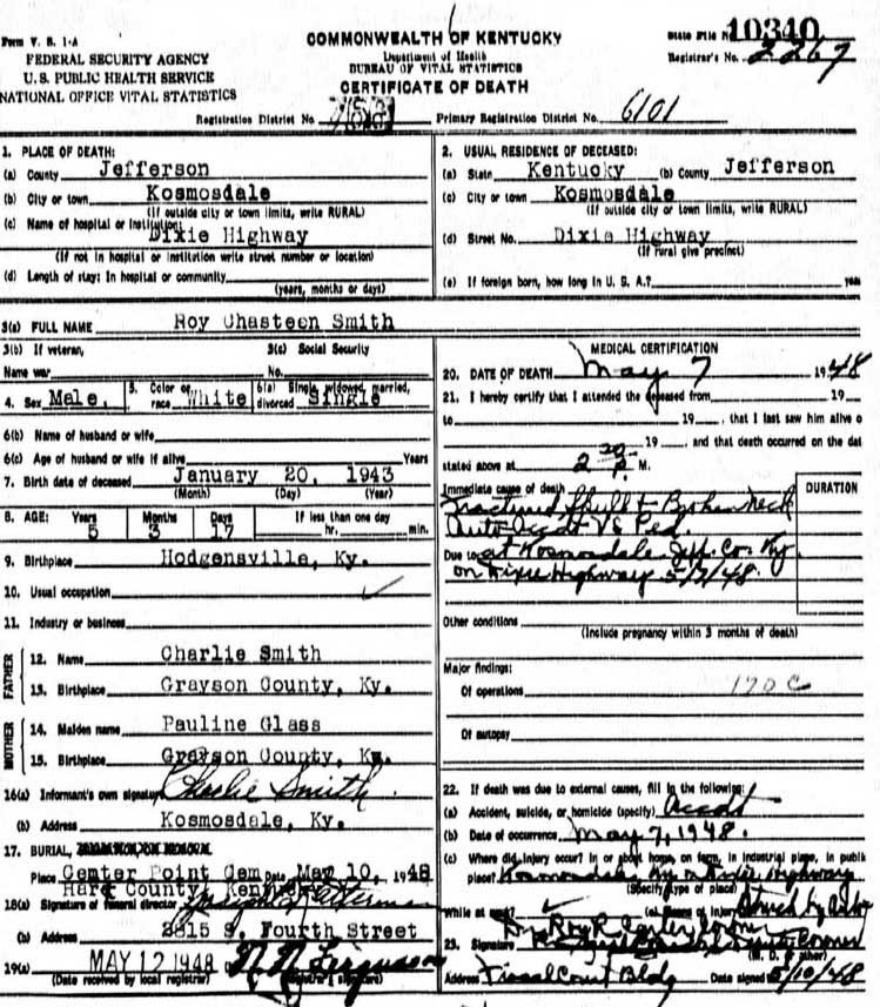 Form V. S. 1-A
FEDERAL SECURITY AGENCY
U. S. PUBLIC HEALTH SERVICE
NATIONAL OFFICE VITAL STATISTICS
COMMONWEALTH OF KENTUCKY
Department of Health
BUREAU OF VITAL STATISTICS
CERTIFICATE OF DEATH
State File No. 10340
Registrar's No. 2267
Registration District No.
Primary Registration District No. 6101
1. PLACE OF DEATH:
(a) County Jefferson
(b) City or town Kosmosdale
(If outside city or town limits, write RURAL)
(c) Name of hospital or institution:
Dixie Highway
(If not in hospital or institution write street number or location)
(d) Length of stay: In hospital or community
(years, months or days)
2. USUAL RESIDENCE OF DECEASED:
(a) State Kentucky (b) County Jefferson
(c) City or town Kosmosdale
(If outside city or town limits, write RURAL)
(d) Street No. Dixie Highway
(If rural give precinct)
(e) If foreign born, how long in U. S. A.? years
3(a) FULL NAME Roy Chasteen Smith
3(b) If veteran,
Name war
3(c) Social Security
No.
4. Sex Male. 5. Color or race White 6(a) Single, widowed, married, divorced Single
6(b) Name of husband or wife
6(c) Age of husband or wife if alive Years
7. Birth date of deceased January 20, 1943
(Month) (Day) (Year)
8. AGE: Years Months Days If less than one day
5 3 17 hr. min.
9. Birthplace Hodgensville, Ky.
10. Usual occupation
11. Industry or business
FATHER
12. Name Charlie Smith
13. Birthplace Grayson County, Ky.
MOTHER
14. Maiden name Pauline Glass
15. Birthplace Grayson County, Ky.
16(a) Informant's own signature Charlie Smith
(b) Address Kosmosdale, Ky.
17. BURIAL,
Place Center Point Cem Date May 10, 1948
Hart County, Kentucky
18(a) Signature of funeral director
(b) Address 2815 S. Fourth Street
19(a) MAY 12 1948 N. N. Ferguson
(Date received by local registrar) (Registrar's signature)
MEDICAL CERTIFICATION
20. DATE OF DEATH May 7 1948
21. I hereby certify that I attended the deceased from 19
to 19 , that I last saw him alive o
19 , and that death occurred on the dat
stated above at 2 30 P. M.
Immediate cause of death DURATION
Fractured Skull + Broken neck
Auto Accdt VS Ped.
Due to at Kosmosdale Jeff. Co. Ky
on Dixie Highway 5/7/48.
Other conditions
(Include pregnancy within 3 months of death)
Major findings:
Of operations 170 c
Of autopsy
22. If death was due to external causes, fill in the following:
(a) Accident, suicide, or homicide (specify) Accdt
(b) Date of occurrence May 7, 1948.
(c) Where did injury occur? In or about home, on farm, in industrial place, in public
place? Kosmosdale Ky on Dixie Highway
(Specify type of place)
While at work? (e) Means of injury Struck by Auto
Dr. Roy R. Coroner
23. Signature Coroner
(M. D. or other)
Address Fiscal Court Bldg Date signed 5/10/48